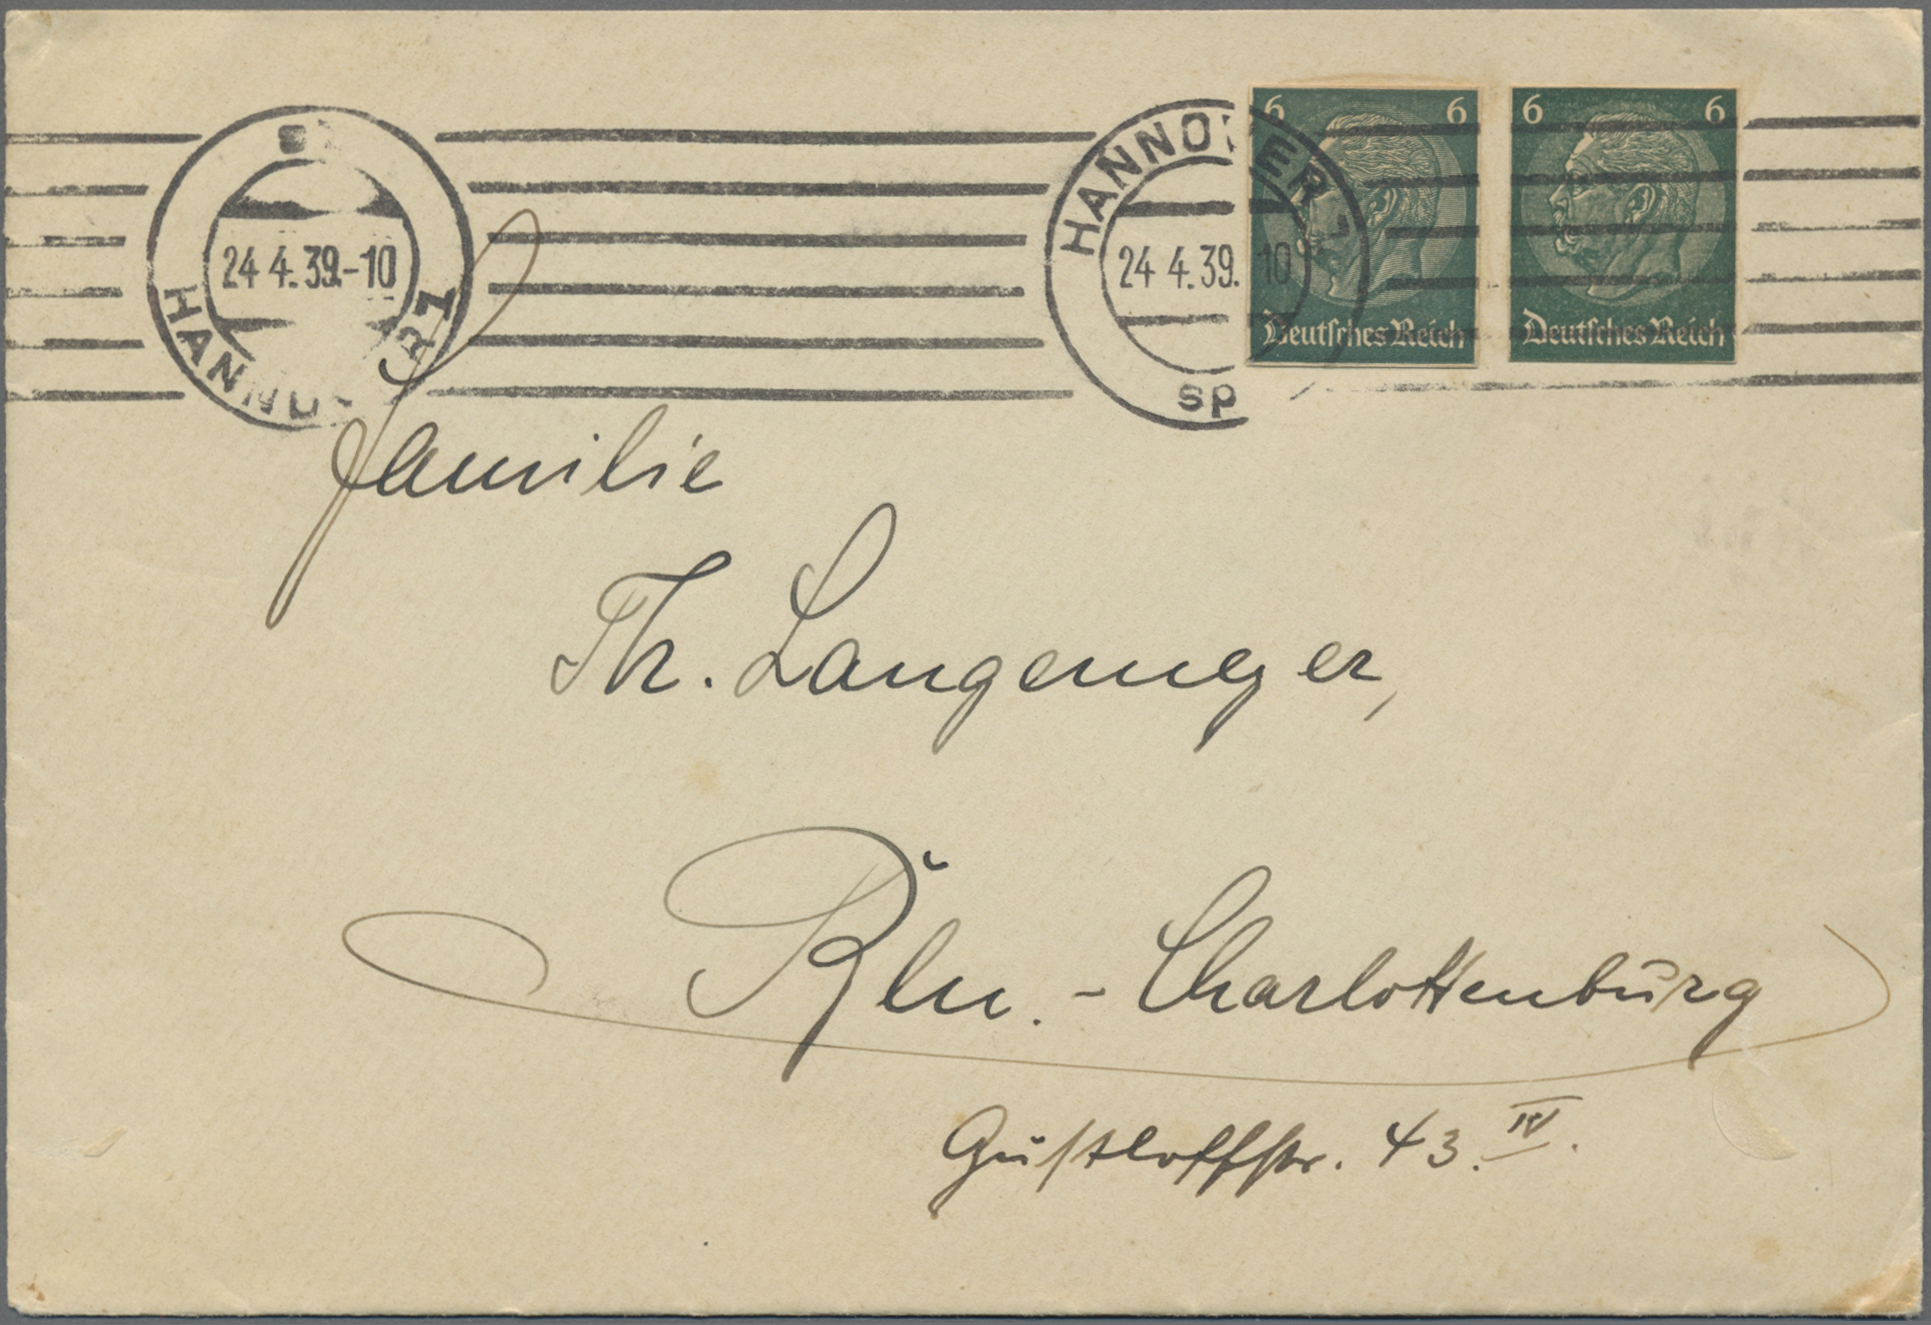 24.4.39.-10
HANNO R1
HANNOVER 1
24.4.39. 10
sp
6 6
Deutsches Reich
6 6
Deutsches Reich
Familie
Th. Langemeyer,
Bln. - Charlottenburg
Gustloffstr. 43. IV.